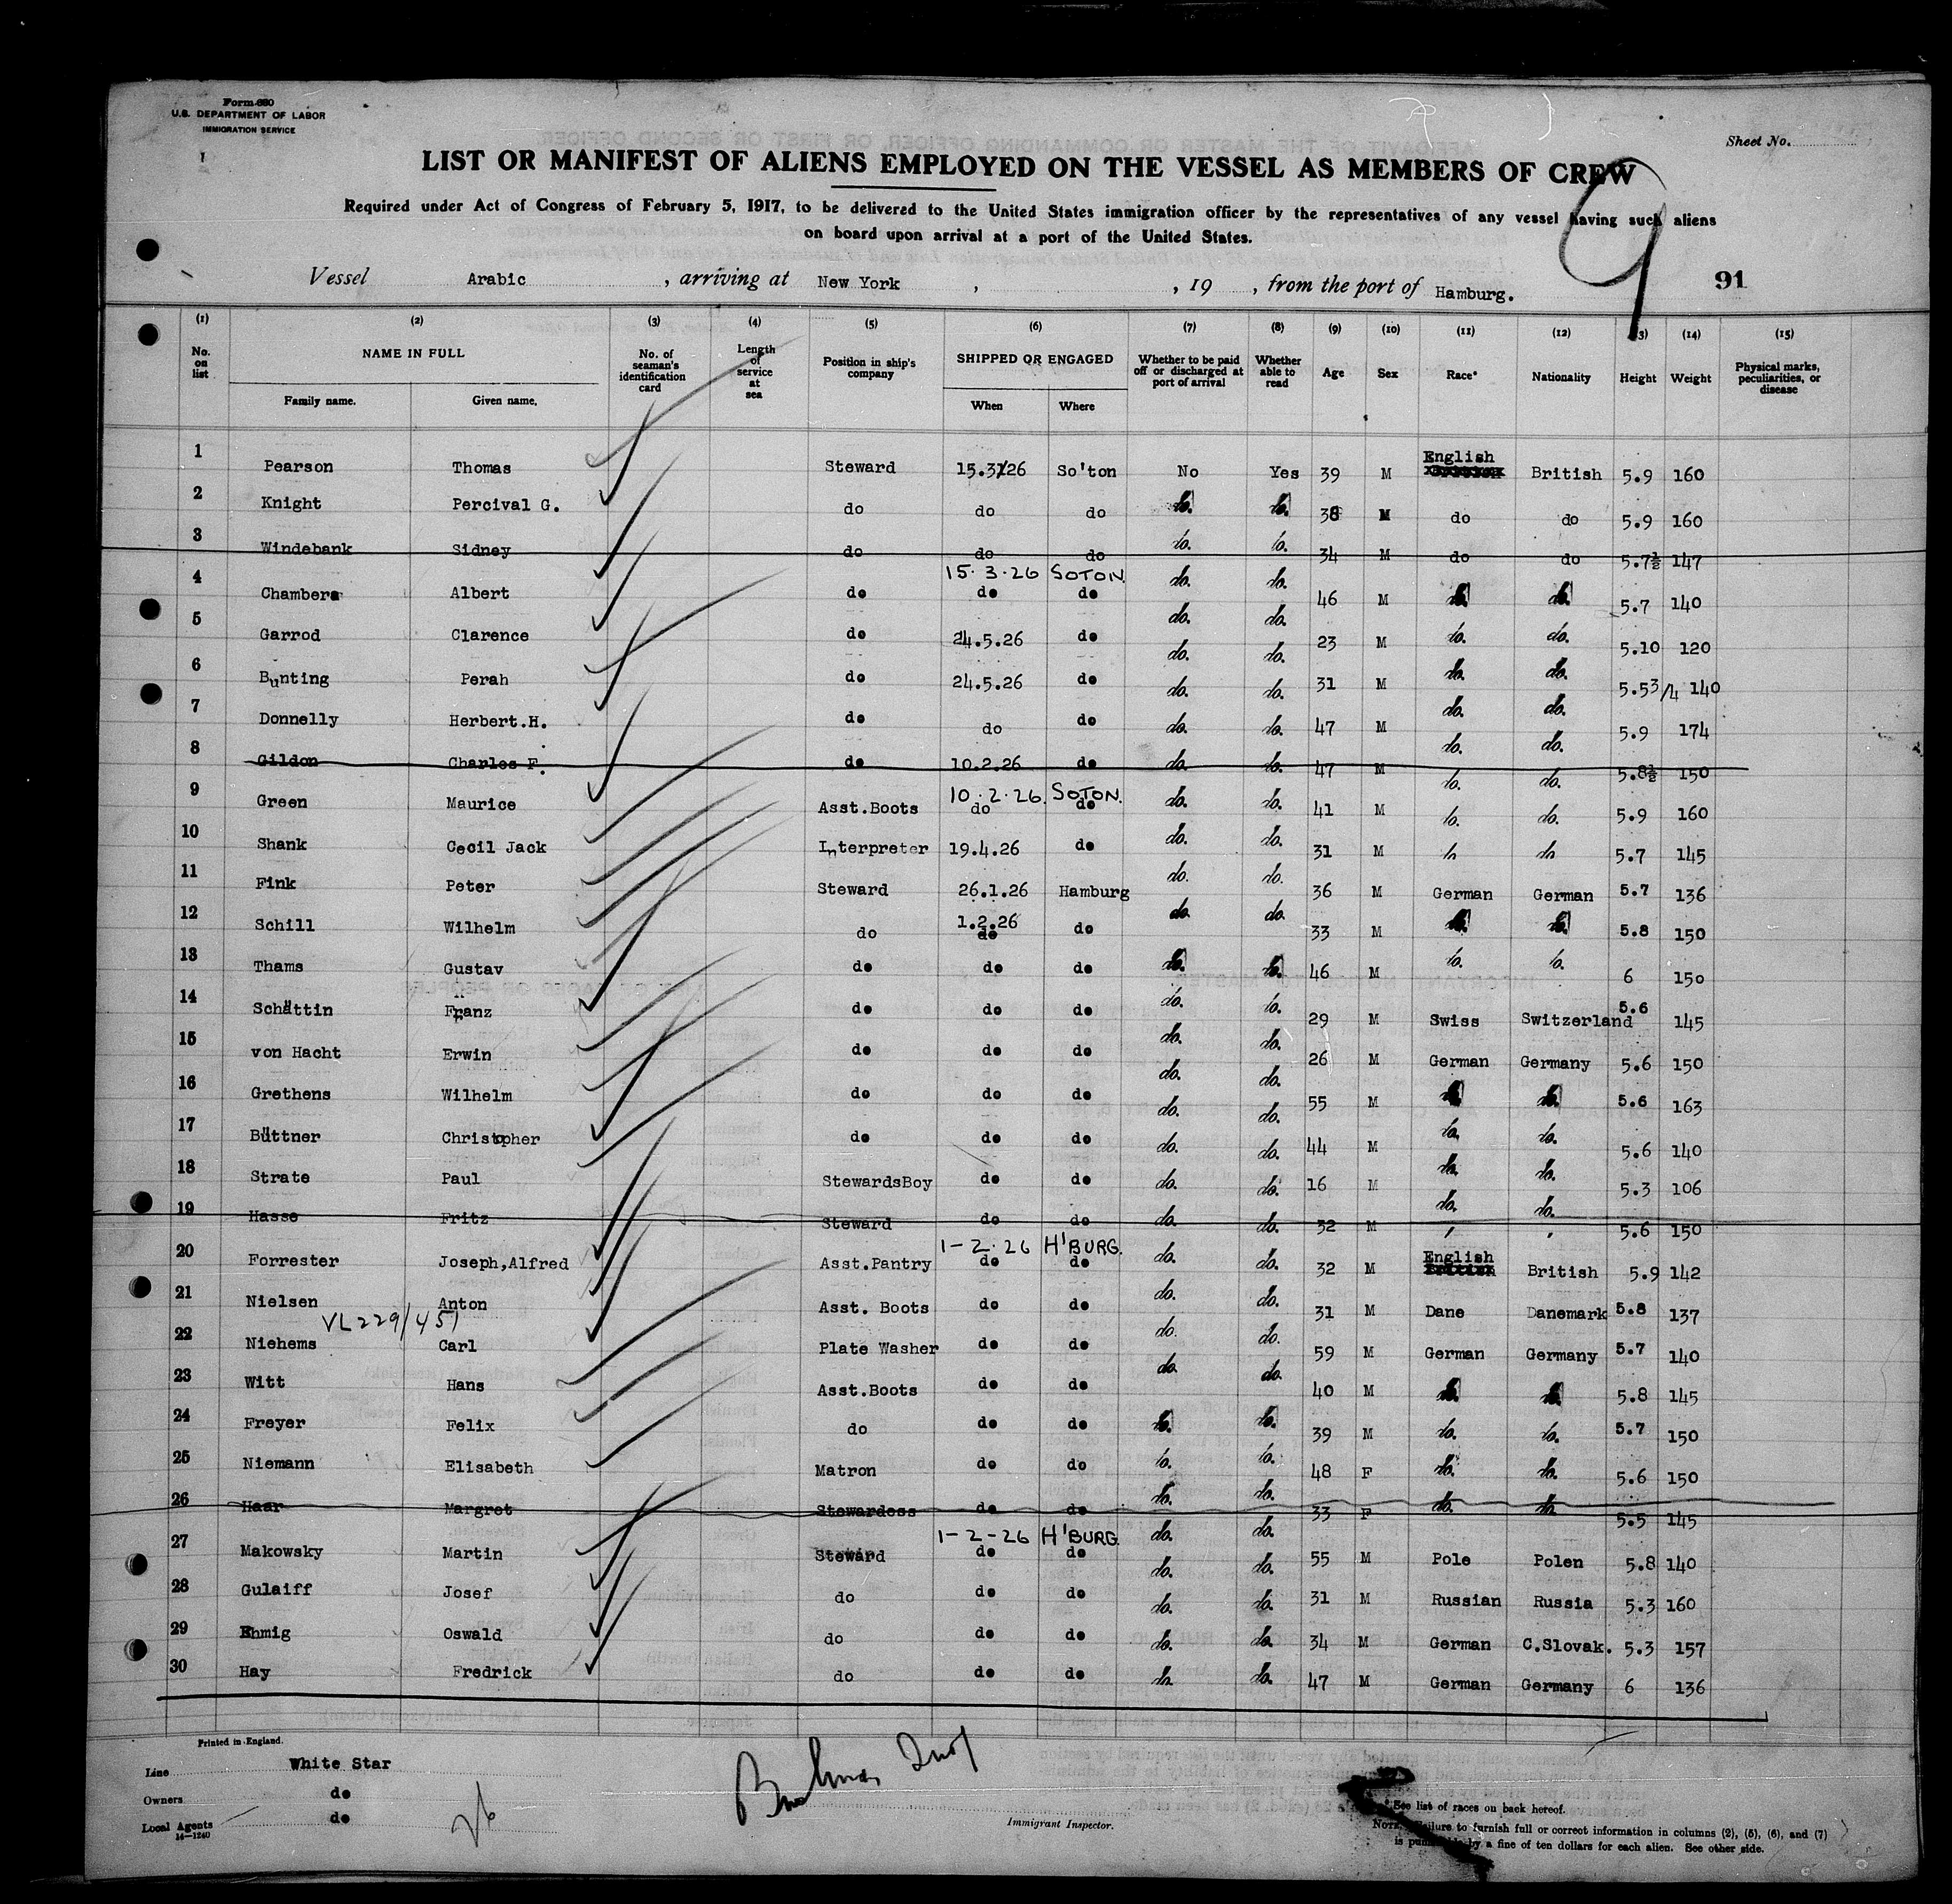 Form 680
U.S. DEPARTMENT OF LABOR
IMMIGRATION SERVICE
Sheet No.
LIST OR MANIFEST OF ALIENS EMPLOYED ON THE VESSEL AS MEMBERS OF CREW
Required under Act of Congress of February 5, 1917, to be delivered to the United States immigration officer by the representatives of any vessel having such aliens
on board upon arrival at a port of the United States.
9
Vessel Arabic , arriving at New York , , 19 , from the port of Hamburg. 91
(1) (2) (3) (4) (5) (6) (7) (8) (9) (10) (11) (12) (13) (14) (15)
No. on list NAME IN FULL No. of seaman's identification card Length of service at sea Position in ship's company SHIPPED OR ENGAGED Whether to be paid off or discharged at port of arrival Whether able to read Age Sex Race* Nationality Height Weight Physical marks, peculiarities, or disease
Family name. Given name. When Where
1 Pearson Thomas Steward 15.3.26 So'ton No Yes 39 M English British 5.9 160
2 Knight Percival G. do do do do. do. 38 M do do 5.9 160
3 Windebank Sidney do do do do. do. 34 M do do 5.7½ 147
15.3.26 SOTON.
4 Chambers Albert do do do do. do. 46 M do. do. 5.7 140
5 Garrod Clarence do 24.5.26 do do. do. 23 M do. do. 5.10 120
6 Bunting Perah do 24.5.26 do do. do. 31 M do. do. 5.53/4 140
7 Donnelly Herbert.H. do do do do. do. 47 M do. do. 5.9 174
8 Gildon Charles F. do 10.2.26 do do. do. 47 M do. do. 5.8½ 150
10.2.26. SOTON.
9 Green Maurice Asst.Boots do do do. do. 41 M do. do. 5.9 160
10 Shank Cecil Jack Interpreter 19.4.26 do do. do. 31 M do do 5.7 145
11 Fink Peter Steward 26.1.26 Hamburg do. do. 36 M German German 5.7 136
12 Schill Wilhelm do 1.2.26 do do do. do. 33 M do. do. 5.8 150
13 Thams Gustav do do do do. do. 46 M do. do. 6 150
14 Schättin Franz do do do do. do. 29 M Swiss Switzerland 5.6 145
15 von Hacht Erwin do do do do. do. 26 M German Germany 5.6 150
16 Grethens Wilhelm do do do do. do. 55 M do. do. 5.6 163
17 Büttner Christopher do do do do. do. 44 M do. do. 5.6 140
18 Strate Paul StewardsBoy do do do. do. 16 M do. do. 5.3 106
19 Hasse Fritz Steward do do do. do. 32 M do. do. 5.6 150
1-2.26 H'BURG.
20 Forrester Joseph,Alfred Asst.Pantry do do do. do. 32 M English British 5.9 142
21 Nielsen Anton Asst. Boots do do do. do. 31 M Dane Danemark 5.8 137
VL229/451
22 Niehems Carl Plate Washer do do do. do. 59 M German Germany 5.7 140
23 Witt Hans Asst.Boots do do do. do. 40 M do. do. 5.8 145
24 Freyer Felix do do do do. do. 39 M do. do. 5.7 150
25 Niemann Elisabeth Matron do do do. do. 48 F do. do. 5.6 150
26 Haar Margret Stewardess do do do. do. 33 F do. do. 5.5 145
1-2-26 H'BURG
27 Makowsky Martin Steward do do do. do. 55 M Pole Polen 5.8 140
28 Gulaiff Josef do do do do. do. 31 M Russian Russia 5.3 160
29 Ehmig Oswald do do do do. do. 34 M German C.Slovak. 5.3 157
30 Hay Fredrick do do do do. do. 47 M German Germany 6 136
Printed in England.
Line White Star
Owners do
Local Agents do
14—1240
26
Immigrant Inspector.
* See list of races on back hereof.
NOTE.—Failure to furnish full or correct information in columns (2), (5), (6), and (7)
is punishable by a fine of ten dollars for each alien. See other side.